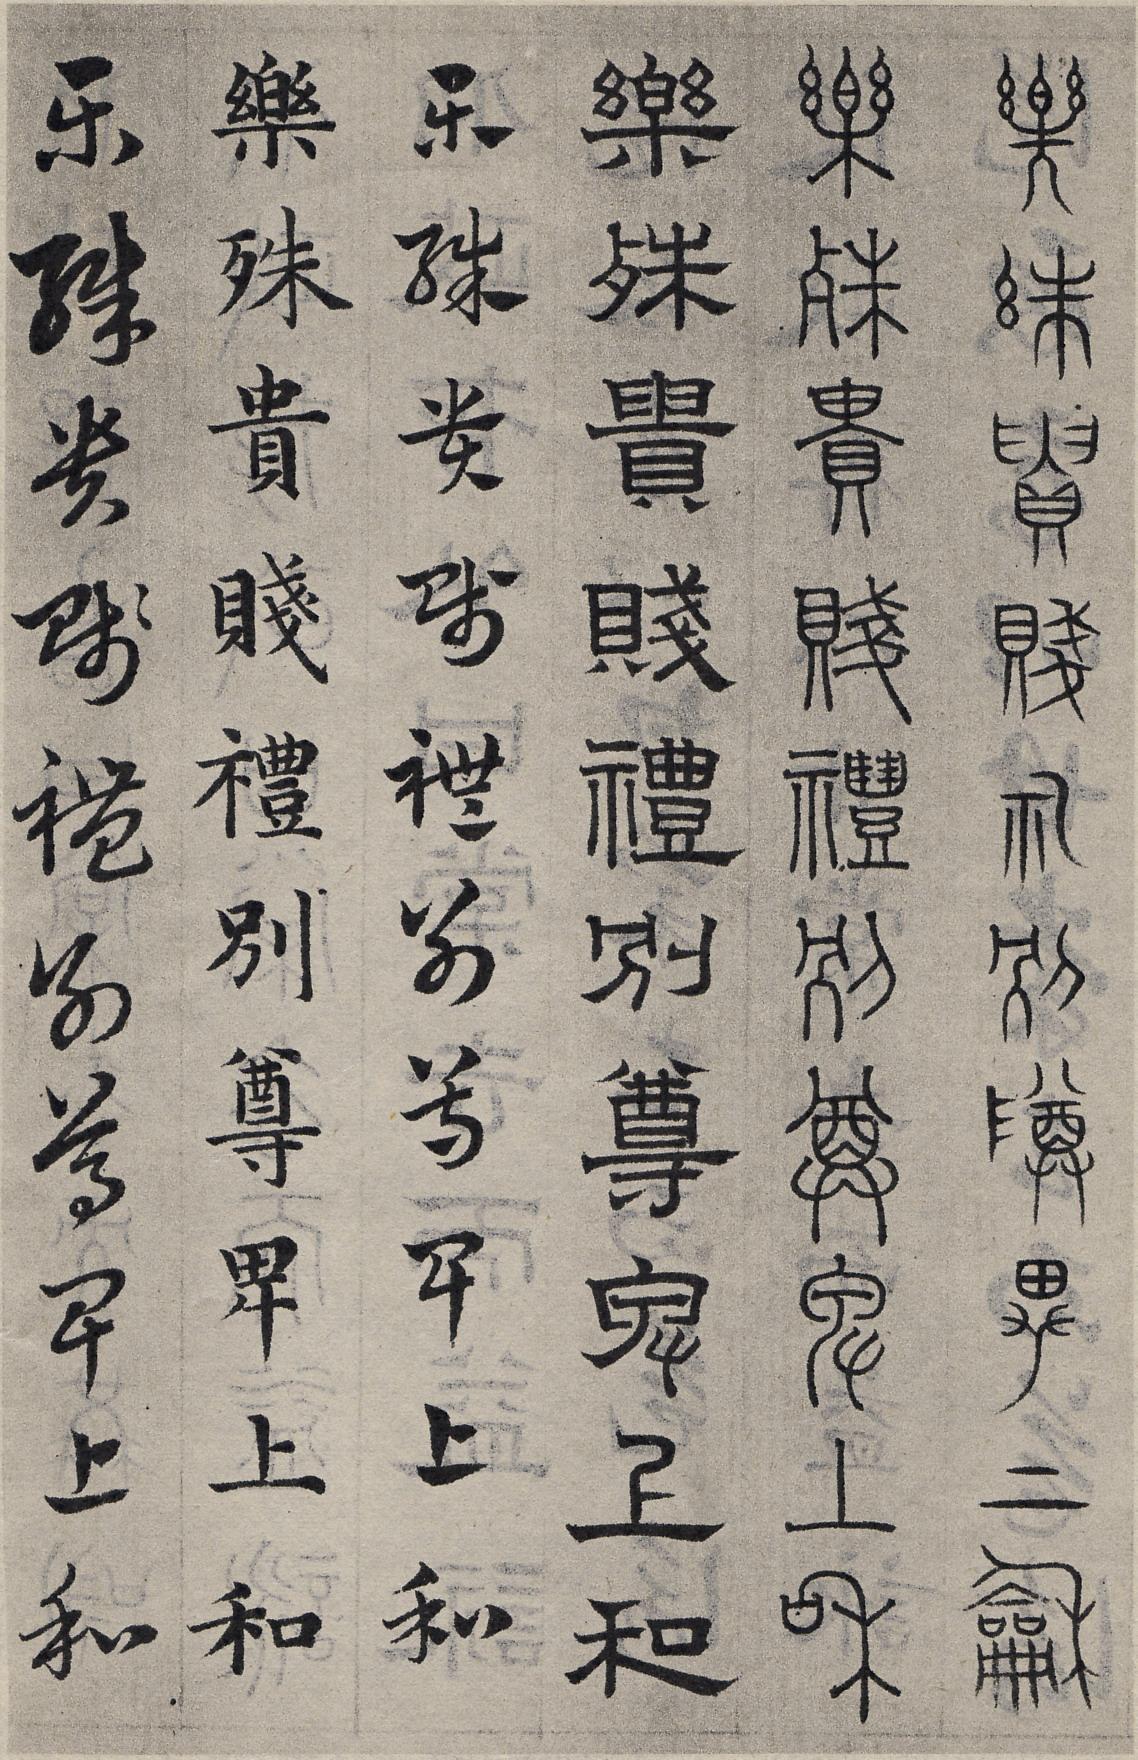 樂殊貴賤禮別尊卑上龢
樂殊貴賤禮別尊卑上和
樂殊貴賤禮別尊卑上和
樂殊貴賤禮別尊卑上和
樂殊貴賤禮別尊卑上和
樂殊貴賤禮別尊卑上和